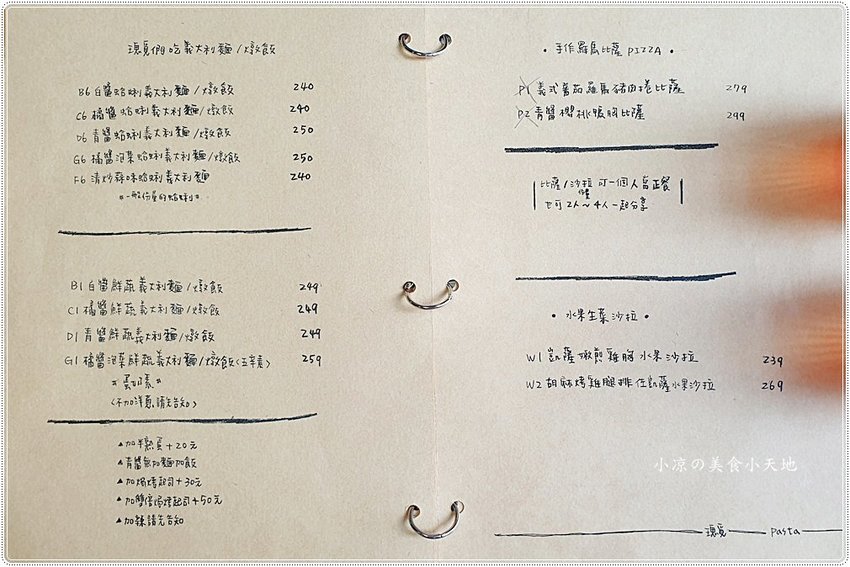 我們吃義大利麵/燉飯
B6 白醬蛤蜊義大利麵/燉飯 240
C6 橘醬蛤蜊義大利麵/燉飯 240
D6 青醬蛤蜊義大利麵/燉飯 250
G6 橘醬泡菜蛤蜊義大利麵/燉飯 250
F6 清炒蒜味蛤蜊義大利麵 240
*一般份量的蛤蜊*
B1 白醬鮮蔬義大利麵/燉飯 249
C1 橘醬鮮蔬義大利麵/燉飯 249
D1 青醬鮮蔬義大利麵/燉飯 249
G1 橘醬泡菜鮮蔬義大利麵/燉飯(五辛素) 259
*蛋奶素*
(不加洋蔥請先告知)
▲加半熟蛋+20元
▲青醬無加麵加飯
▲加焗烤起司+30元
▲加雙倍焗烤起司+50元
▲加辣請先告知
•手作羅馬比薩 PIZZA•
P1 義式蕃茄羅馬豬肉捲比薩 279
P2 青醬櫻桃鴨胸比薩 299
比薩/沙拉 可一個人當正餐
也可2人~4人一起分享
• 水果生菜沙拉 •
W1 凱薩嫩煎雞胸水果沙拉 239
W2 胡麻烤雞腿排佐凱薩水果沙拉 269
小凉の美食小天地
Pasta